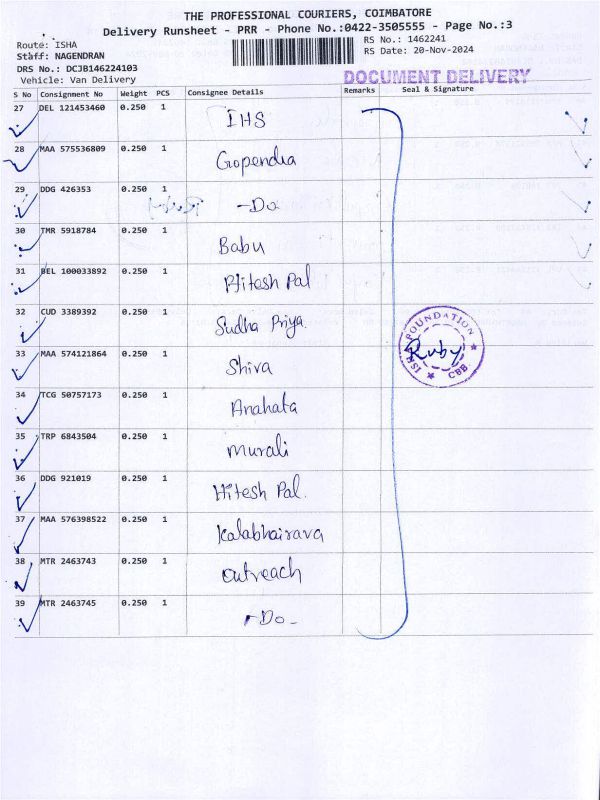 THE PROFESSIONAL COURIERS, COIMBATORE
Delivery Runsheet - PRR - Phone No.:0422-3505555 - Page No.:3
Route: ISHA
Staff: NAGENDRAN
DRS No.: DCJB146224103
Vehicle: Van Delivery
RS No.: 1462241
RS Date: 20-Nov-2024
DOCUMENT DELIVERY
S No Consignment No Weight PCS Consignee Details Remarks Seal & Signature
27 DEL 121453460 0.250 1 IHS
28 MAA 575536809 0.250 1 Gopendra
29 DDG 426353 0.250 1 -Do
30 TMR 5918784 0.250 1 Babu
31 BEL 100033892 0.250 1 Hitesh Pal
32 CUD 3389392 0.250 1 Sudha Priya.
33 MAA 574121864 0.250 1 Shiva
34 TCG 50757173 0.250 1 Anahata
35 TRP 6843504 0.250 1 Murali
36 DDG 921019 0.250 1 Hitesh Pal.
37 MAA 576398522 0.250 1 Kalabhairava
38 MTR 2463743 0.250 1 Outreach
39 MTR 2463745 0.250 1 -Do-
ISHA FOUNDATION
Ruby
CBB